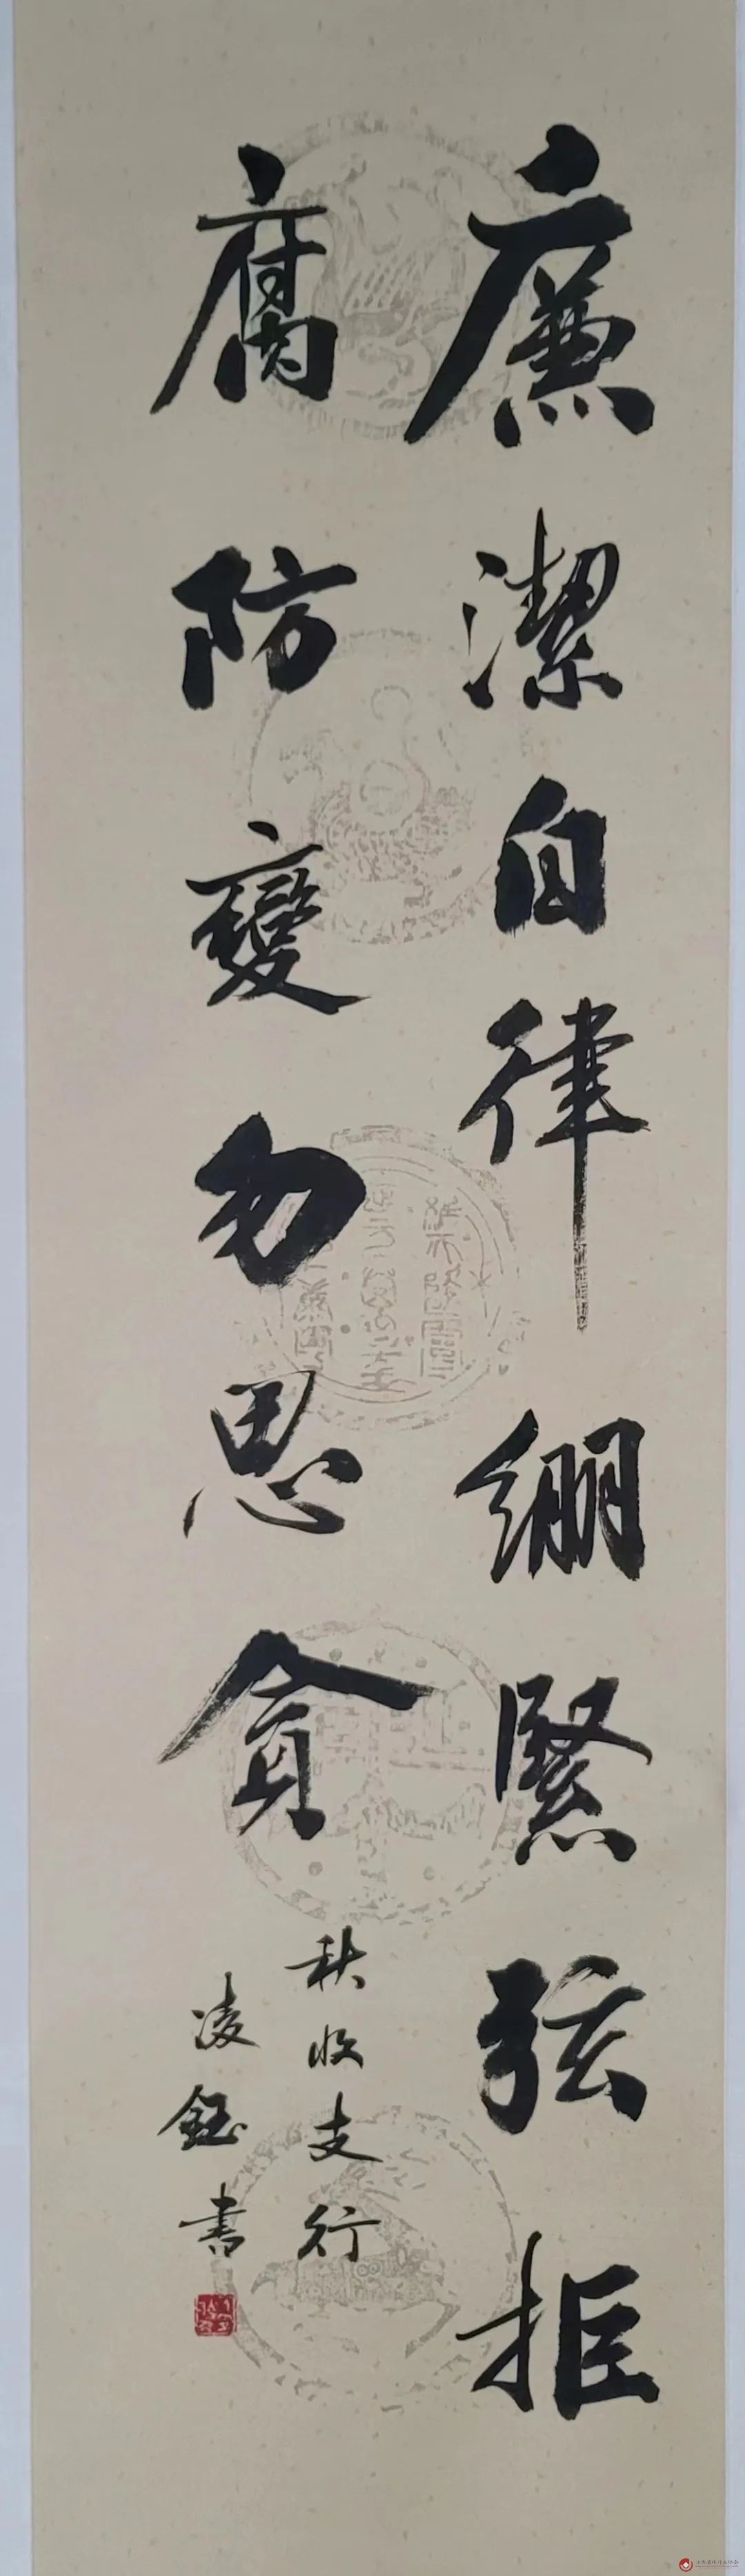 廉潔自律绷緊弦拒
腐防變勿思貪
秋收支行
凌鈺書